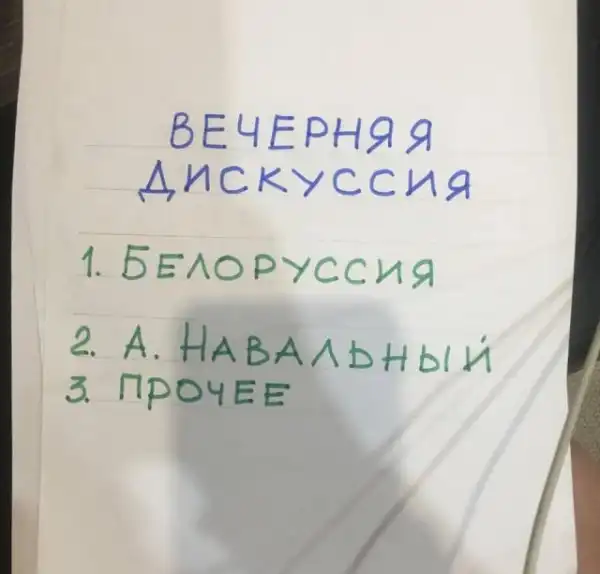 ВЕЧЕРНЯЯ
ДИСКУССИЯ
1. БЕЛОРУССИЯ
2. А. НАВАЛЬНЫЙ
3. ПРОЧЕЕ